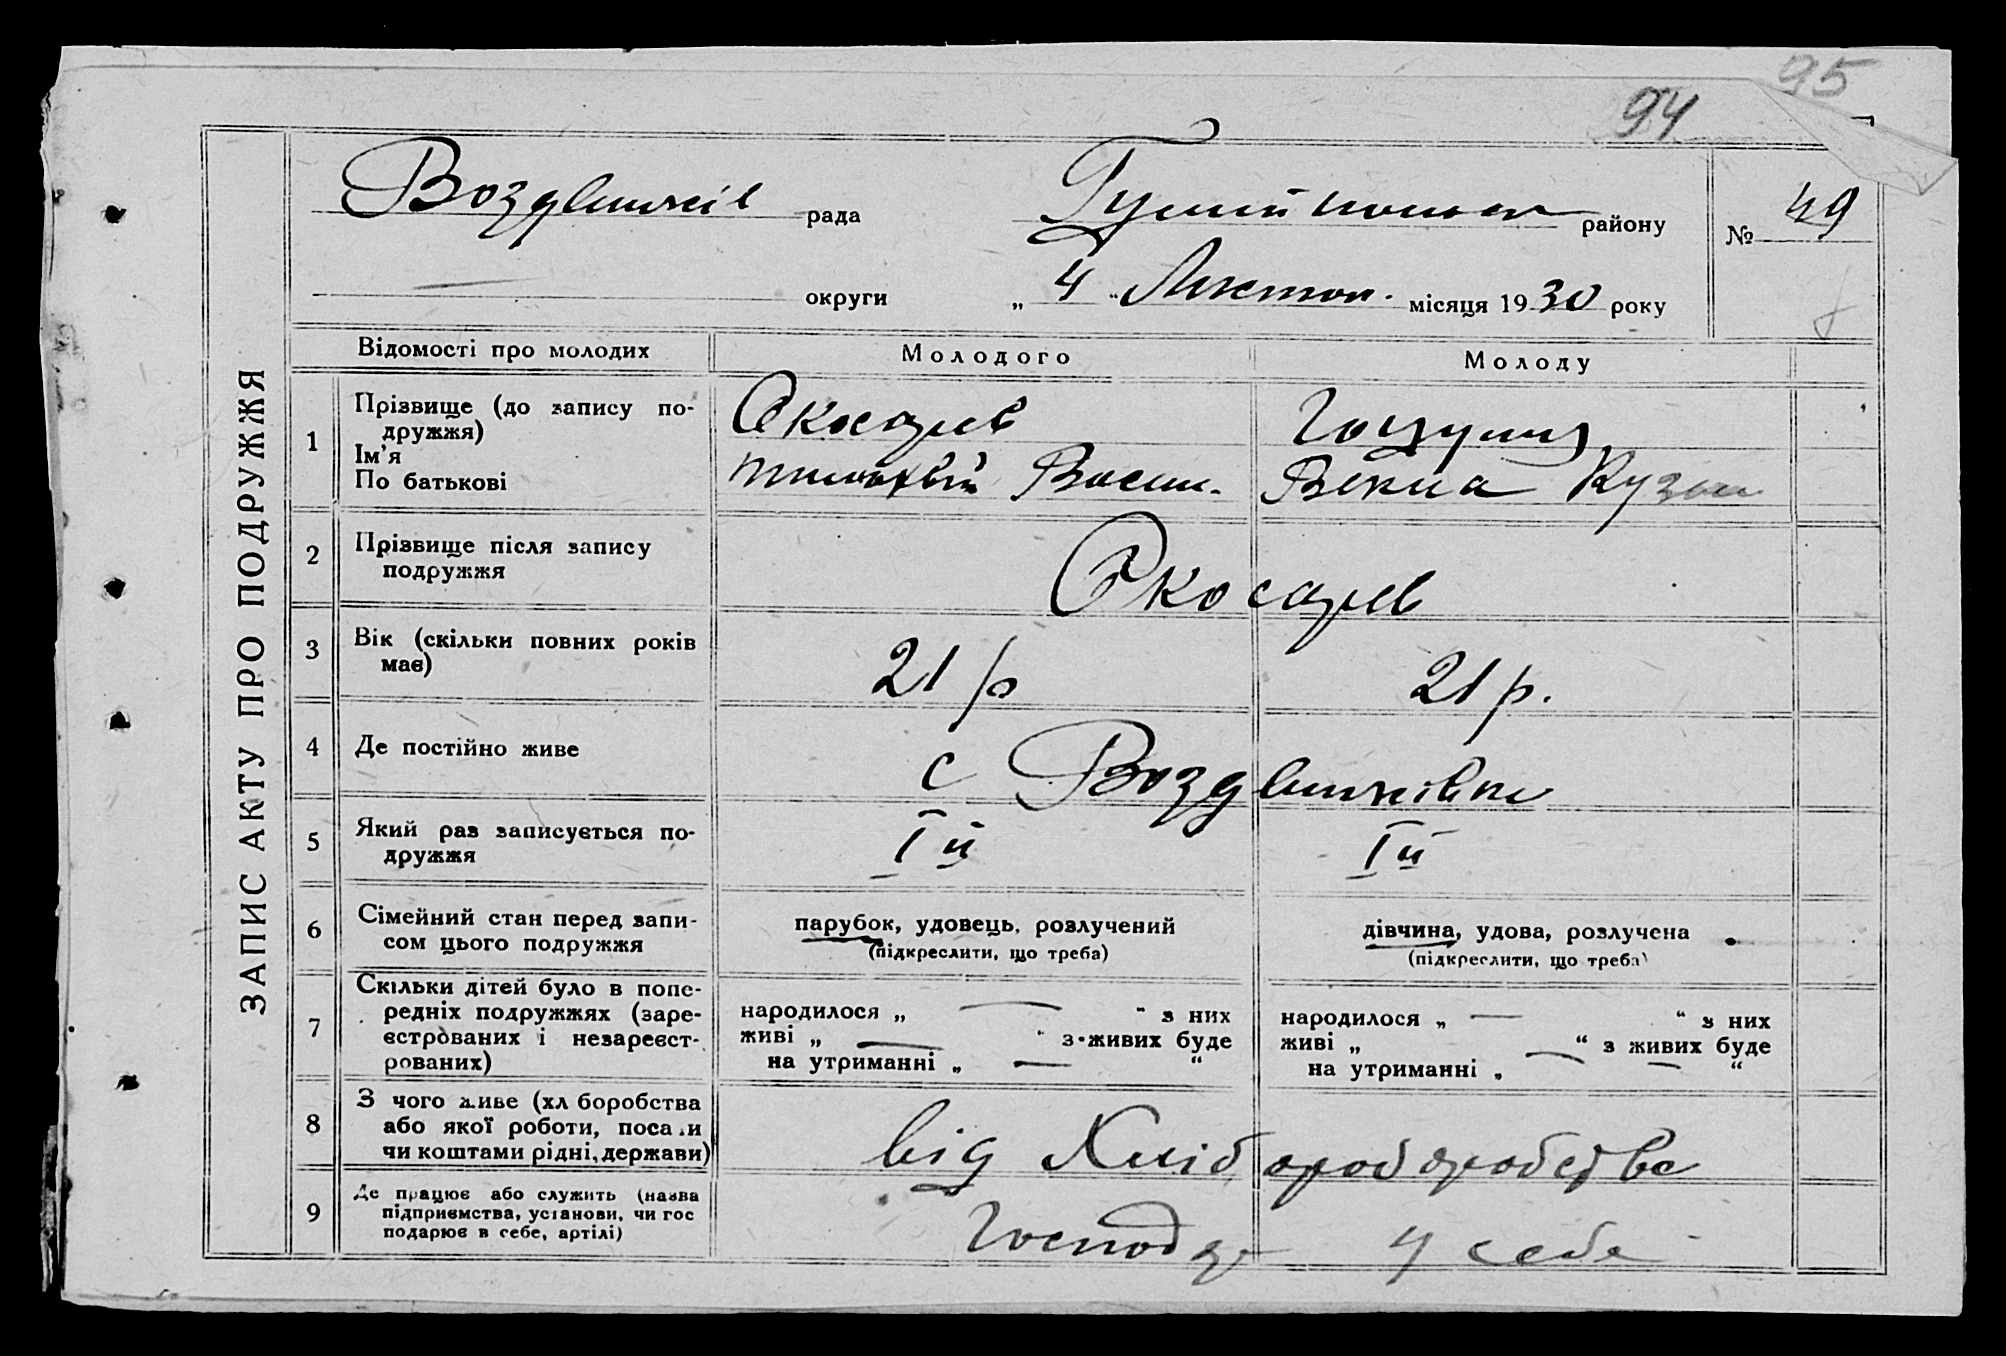 95
94
ЗАПИС АКТУ ПРО ПОДРУЖЖЯ
Воздвижів рада
Гуляйпольськ району
№ 49
— округи
„ 4 “ Листоп. місяця 1930 року
Відомості про молодих
Молодого
Молоду
1
Прізвище (до запису по-
дружжя)
Ім'я
По батькові
Скосарев
Тимофій Васил.
Векла Кузьм
2
Прізвище після запису
подружжя
Скосарев
3
Вік (скільки повних років
має)
21 р
21 р.
4
Де постійно живе
с Воздвижівки
5
Який раз записується по-
дружжя
I й
I й
6
Сімейний стан перед запи-
сом цього подружжя
парубок, удовець, розлучений
(підкреслити, що треба)
дівчина, удова, розлучена
(підкреслити, що треба)
7
Скільки дітей було в попе-
редніх подружжях (заре-
єстрованих і незареєст-
рованих)
народилося „ — “ з них
живі „ — “ з живих буде
на утриманні „ — “
народилося „ — “ з них
живі „ — “ з живих буде
на утриманні „ — “
8
З чого живе (хл боробства
або якої роботи, посади
чи коштами рідні, держави)
від Хліб
9
Де працює або служить (назва
підприємства, установи, чи гос
подарює в себе, артілі)
Господар у себе